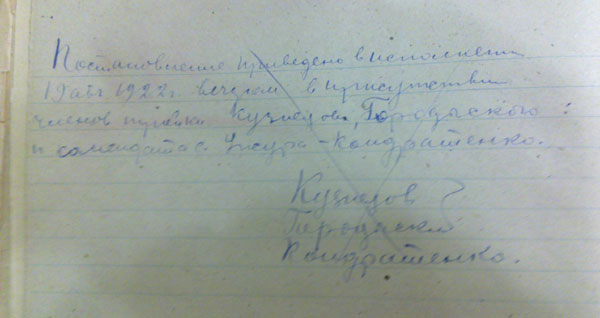 Постановление приведено в исполнении
19 авг. 1922 г. вечером в присутствии
членов тройки Кузнецова, Городского
и Ужура - Кондратенко.
Кузнецов
Кондратенко.